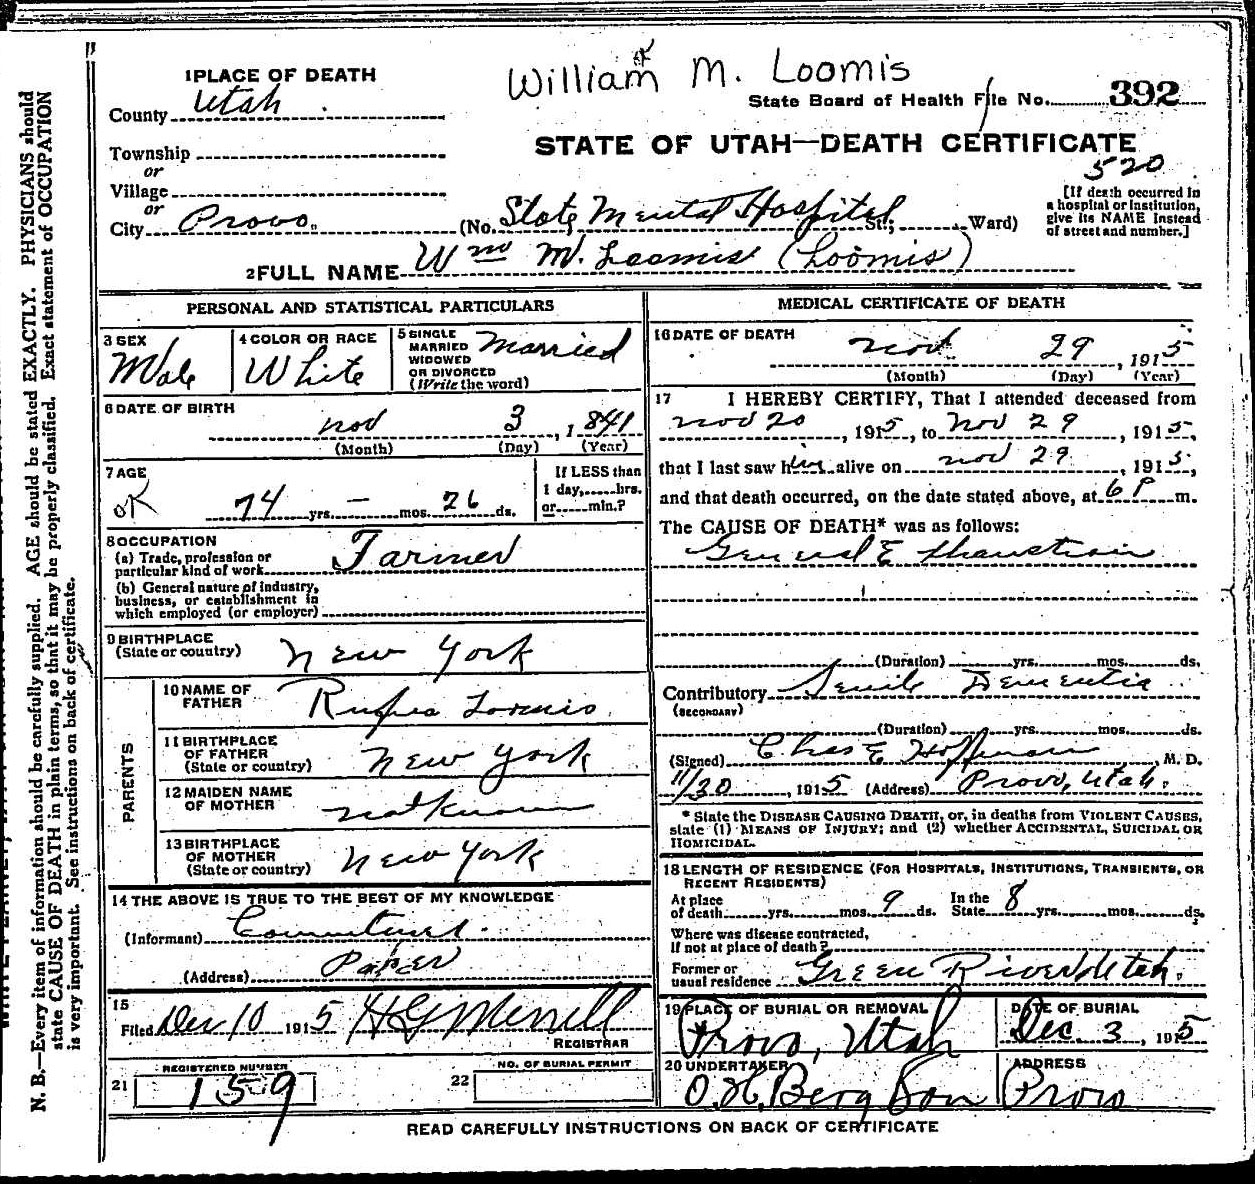 William M. Loomis
1 PLACE OF DEATH
County Utah
State Board of Health File No. 392
STATE OF UTAH—DEATH CERTIFICATE
520
Township
or
Village
or
City Provo. (No. State Mental Hospital St.; Ward)
[If death occurred in
a hospital or institution,
give its NAME instead
of street and number.]
2 FULL NAME Wm M. Loomis (Loomis)
PERSONAL AND STATISTICAL PARTICULARS
3 SEX
Male
4 COLOR OR RACE
White
5 SINGLE
MARRIED
WIDOWED
OR DIVORCED
(Write the word)
Married
6 DATE OF BIRTH
Nov 3, 1841
(Month) (Day) (Year)
7 AGE
OK
74 yrs. — mos. 26 ds.
If LESS than
1 day,......hrs.
or......min.?
8 OCCUPATION
(a) Trade, profession or
particular kind of work Farmer
(b) General nature of industry,
business, or establishment in
which employed (or employer)
9 BIRTHPLACE
(State or country) New York
PARENTS
10 NAME OF
FATHER Rufus Loomis
11 BIRTHPLACE
OF FATHER
(State or country) New York
12 MAIDEN NAME
OF MOTHER not known
13 BIRTHPLACE
OF MOTHER
(State or country) New York
14 THE ABOVE IS TRUE TO THE BEST OF MY KNOWLEDGE
(Informant) Commitment
(Address) Paper
15
Filed Dec 10 1915 H G Merrill
REGISTRAR
21 REGISTERED NUMBER
159
22 NO. OF BURIAL PERMIT
MEDICAL CERTIFICATE OF DEATH
16 DATE OF DEATH
Nov. 29, 1915
(Month) (Day) (Year)
17 I HEREBY CERTIFY, That I attended deceased from
Nov 20, 1915, to Nov 29, 1915,
that I last saw him alive on Nov 29, 1915,
and that death occurred, on the date stated above, at 6 P m.
The CAUSE OF DEATH* was as follows:
General Exhaustion
(Duration) yrs. mos. ds.
Contributory Senile Dementia
(SECONDARY)
(Duration) yrs. mos. ds.
(Signed) Chas E Hoffman, M. D.
11/30, 1915 (Address) Provo, Utah.
* State the DISEASE CAUSING DEATH, or, in deaths from VIOLENT CAUSES,
state (1) MEANS OF INJURY; and (2) whether ACCIDENTAL, SUICIDAL OR
HOMICIDAL.
18 LENGTH OF RESIDENCE (FOR HOSPITALS, INSTITUTIONS, TRANSIENTS, OR
RECENT RESIDENTS)
At place
of death yrs. mos. 9 ds. In the
State 8 yrs. mos. ds.
Where was disease contracted,
If not at place of death?
Former or
usual residence Green River Utah.
19 PLACE OF BURIAL OR REMOVAL
Provo, Utah
DATE OF BURIAL
Dec 3, 1915
20 UNDERTAKER
O. H. Berg & Son
ADDRESS
Provo
READ CAREFULLY INSTRUCTIONS ON BACK OF CERTIFICATE
N. B.—Every item of information should be carefully supplied. AGE should be stated EXACTLY. PHYSICIANS should
state CAUSE OF DEATH in plain terms, so that it may be properly classified. Exact statement of OCCUPATION
is very important. See instructions on back of certificate.